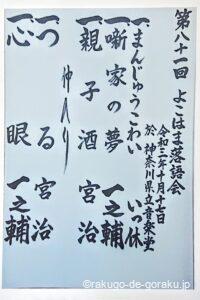 第八十一回 よこはま落語会
令和三年十月十七日
於 神奈川県立音楽堂
一、まんじゅうこわい いっ休
一、噺家の夢 一之輔
一、親子酒 宮治
仲入り
一、つる 宮治
一、心眼 一之輔
©rakugo-de-goraku.jp